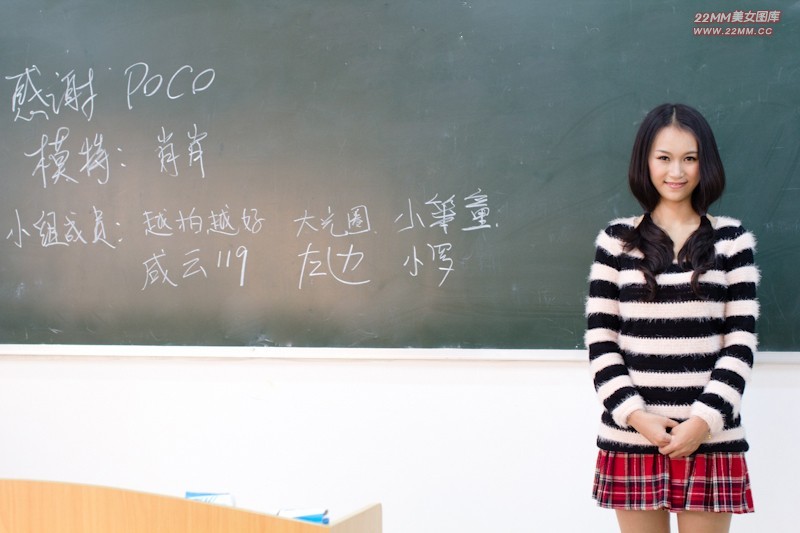 22MM美女图库
WWW.22MM.CC
感谢 POCO
模特：肖肖
小组成员：越拍越好 大光圈 小筆童
威云119 左边 小罗